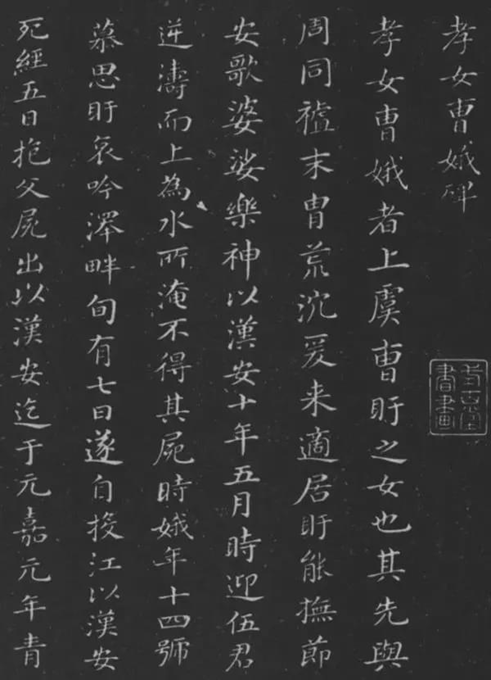 孝女曹娥碑
孝女曹娥者上虞曹盱之女也其先與
周同禩末胄荒沈爰来適居盱能撫節
安歌婆娑樂神以漢安十年五月時迎伍君
逆濤而上為水所淹不得其屍時娥年十四號
慕思盱哀吟澤畔旬有七日遂自投江以漢安
死經五日抱父屍出以漢安迄于元嘉元年青
書畫